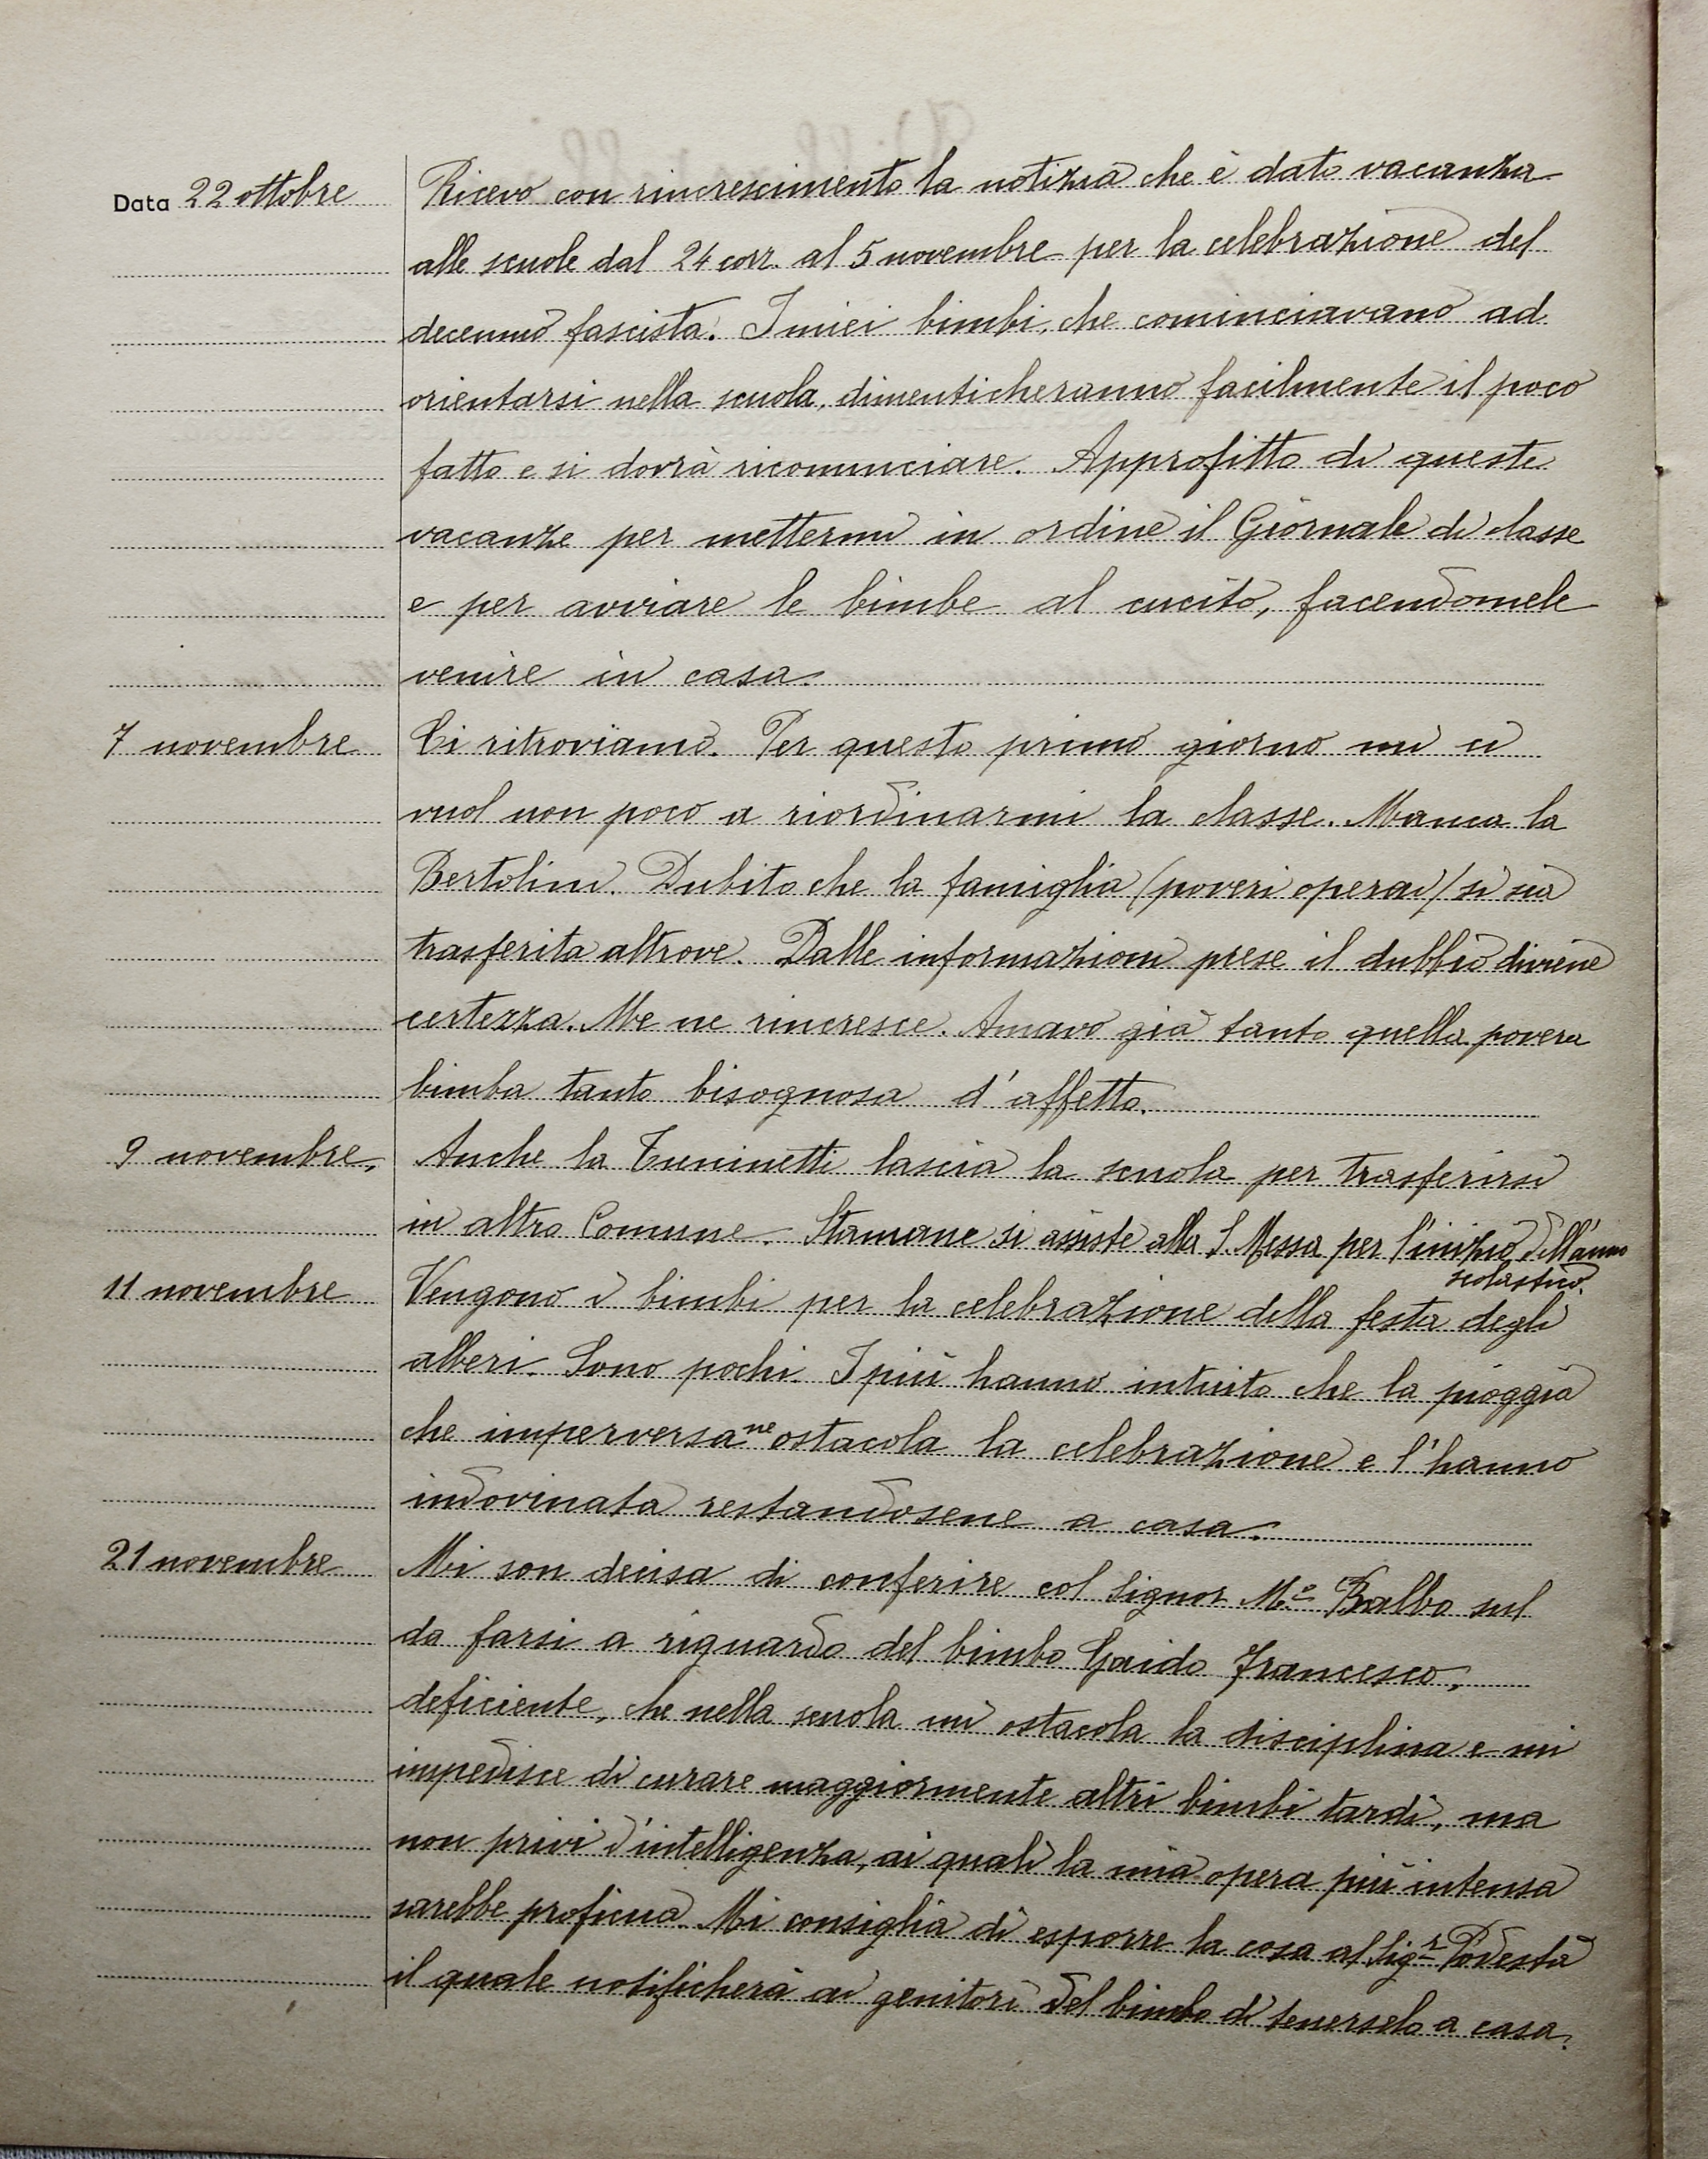 Data 22 ottobre Ricevo con rincrescimento la notizia che è dato vacanza
alle scuole dal 24 corr. al 5 novembre per la celebrazione del
decennio fascista. I miei bimbi, che cominciavano ad
orientarsi nella scuola, dimenticheranno facilmente il poco
fatto e si dovrà ricominciare. Approfitto di queste
vacanze per mettermi in ordine il Giornale di classe
e per avviare le bimbe al cucito, facendomele
venire in casa.
7 novembre Ci ritroviamo. Per questo primo giorno mi ci
vuol non poco a riordinarmi la classe. Manca la
Bertolini. Dubito che la famiglia (poveri operai) si sia
trasferita altrove. Dalle informazioni prese il dubbio diviene
certezza. Me ne rincresce. Amavo già tanto quella povera
bimba tanto bisognosa d'affetto.
9 novembre. Anche la Tuninetti lascia la scuola per trasferirsi
in altro Comune. Stamane si assiste alla S. Messa per l'inizio dell'anno
scolastico.
11 novembre Vengono i bimbi per la celebrazione della festa degli
alberi. Sono pochi. I più hanno intuito che la pioggia
che imperversa ne ostacola la celebrazione e l'hanno
indovinata restandosene a casa.
21 novembre Mi son decisa di conferire col Signor M.o Balbo sul
da farsi a riguardo del bimbo Gaido Francesco,
deficiente, che nella scuola mi ostacola la disciplina e mi
impedisce di curare maggiormente altri bimbi tardi, ma
non privi d'intelligenza, ai quali la mia opera più intensa
sarebbe proficua. Mi consiglia di esporre la cosa al Sig.r Podestà
il quale notificherà ai genitori del bimbo di tenerselo a casa.